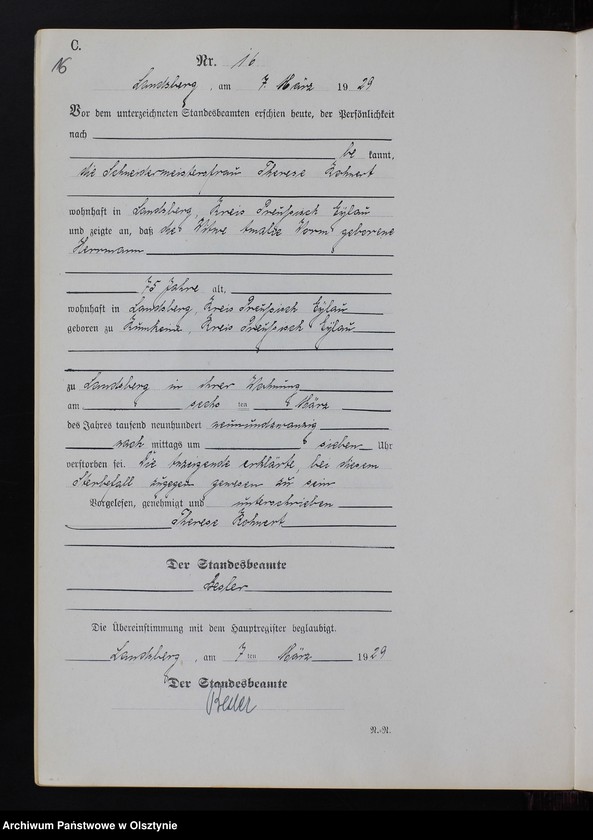 C.
16
Nr. 16
Landsberg, am 7. März 1929
Vor dem unterzeichneten Standesbeamten erschien heute, der Persönlichkeit
nach
be kannt,
die Schneidermeistersfrau Therese Rohnert
wohnhaft in Landsberg, Kreis Preußisch Eylau
und zeigte an, daß die Witwe Amalie Worm geborene
Herrmann
75 Jahre alt,
wohnhaft in Landsberg, Kreis Preußisch Eylau
geboren zu Kreis Preußisch Eylau
zu Landsberg in ihrer Wohnung
am sechs ten März
des Jahres tausend neunhundert neunundzwanzig
nach mittags um sieben Uhr
verstorben sei. Die Anzeigende erklärte, bei diesem
Sterbefall zugegen gewesen zu sein
Vorgelesen, genehmigt und unterschrieben
Therese Rohnert
Der Standesbeamte
Die Übereinstimmung mit dem Hauptregister beglaubigt.
Landsberg, am 7 ten März 1929
Der Standesbeamte
N.-R.
Archiwum Państwowe w Olsztynie